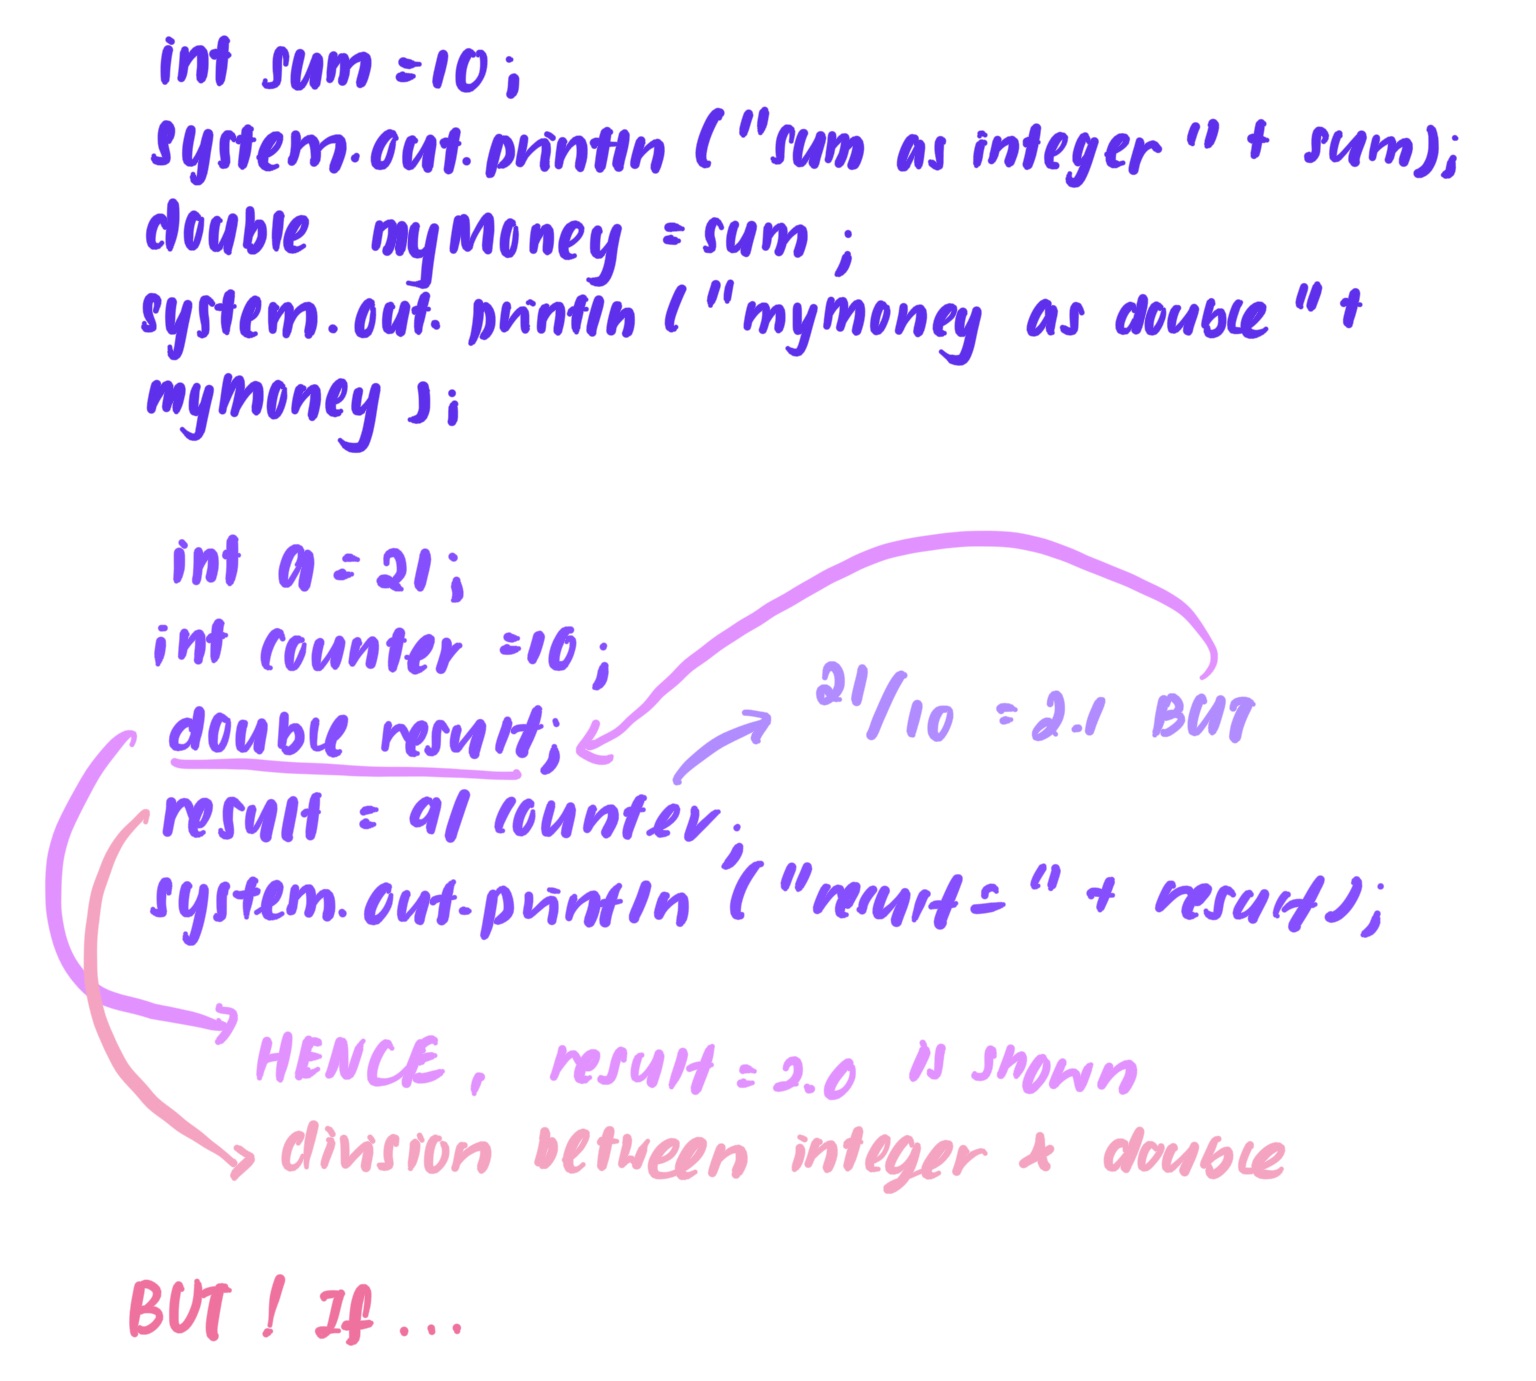 int sum = 10 ;
system.out.println ( "sum as integer " + sum);
double myMoney = sum ;
system.out.println ( "mymoney as double " +
myMoney ) ;
int a = 21 ;
int counter = 10 ;
21/10 = 2.1 BUT
double result;
result = a/ counter ;
system.out.println ( "result = " + result) ;
HENCE , result = 2.0 is shown
division between integer & double
BUT ! If ...